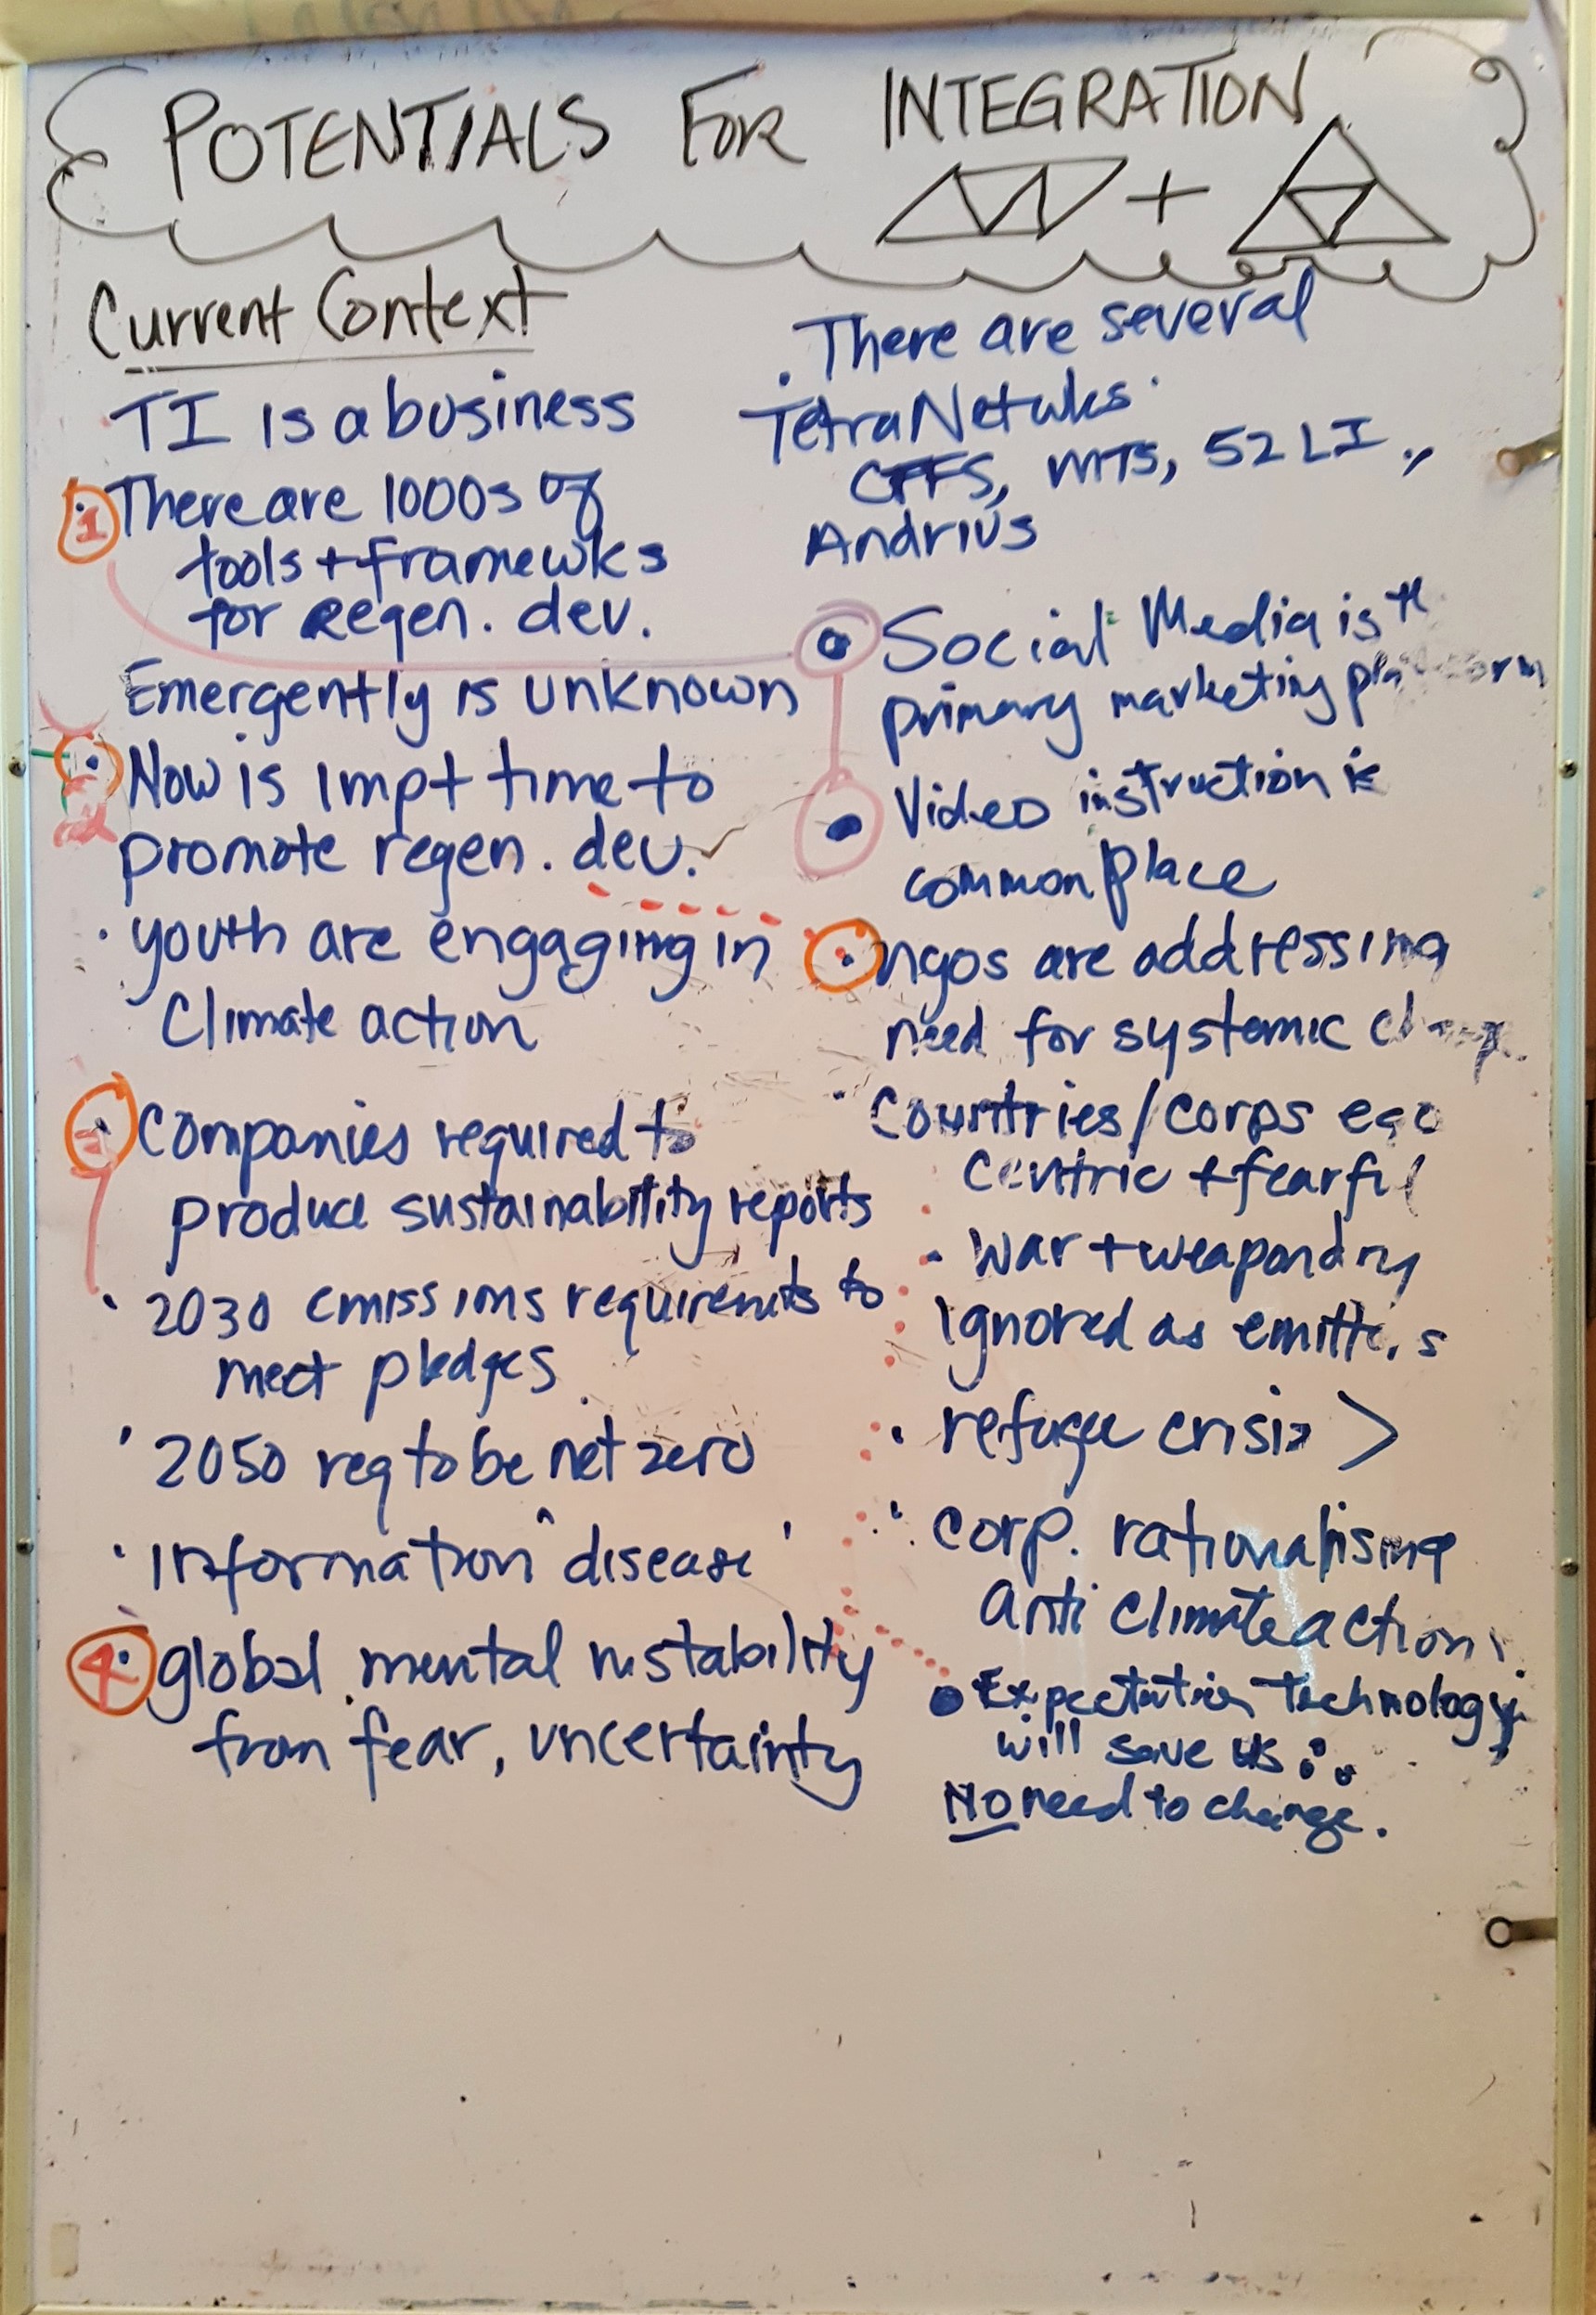 POTENTIALS FOR INTEGRATION
+
Current Context
TI is a business
1 There are 1000s of
tools + framewks
for Regen. dev.
Emergently is unknown
• Now is impt time to
promote regen. dev.
• youth are engaging in
Climate action
Companies required to
produce sustainability reports
• 2030 emissions requiremts to
meet pledges
• 2050 req to be net zero
• information "disease"
4. global mental instability
from fear, uncertainty
• There are several
TetraNetwks.
CFFS, MTS, 52 LI,
Andrius
• Social Media is th
primary marketing platform
• Video instruction is
common place
• ngos are addressing
need for systemic
• Countries/corps ego
centric + fearful
• war + weapondry
ignored as emitters
• refugee crisis >
• corp. rationalising
anti climate action
• Expectation technology
will save us
NO need to change.